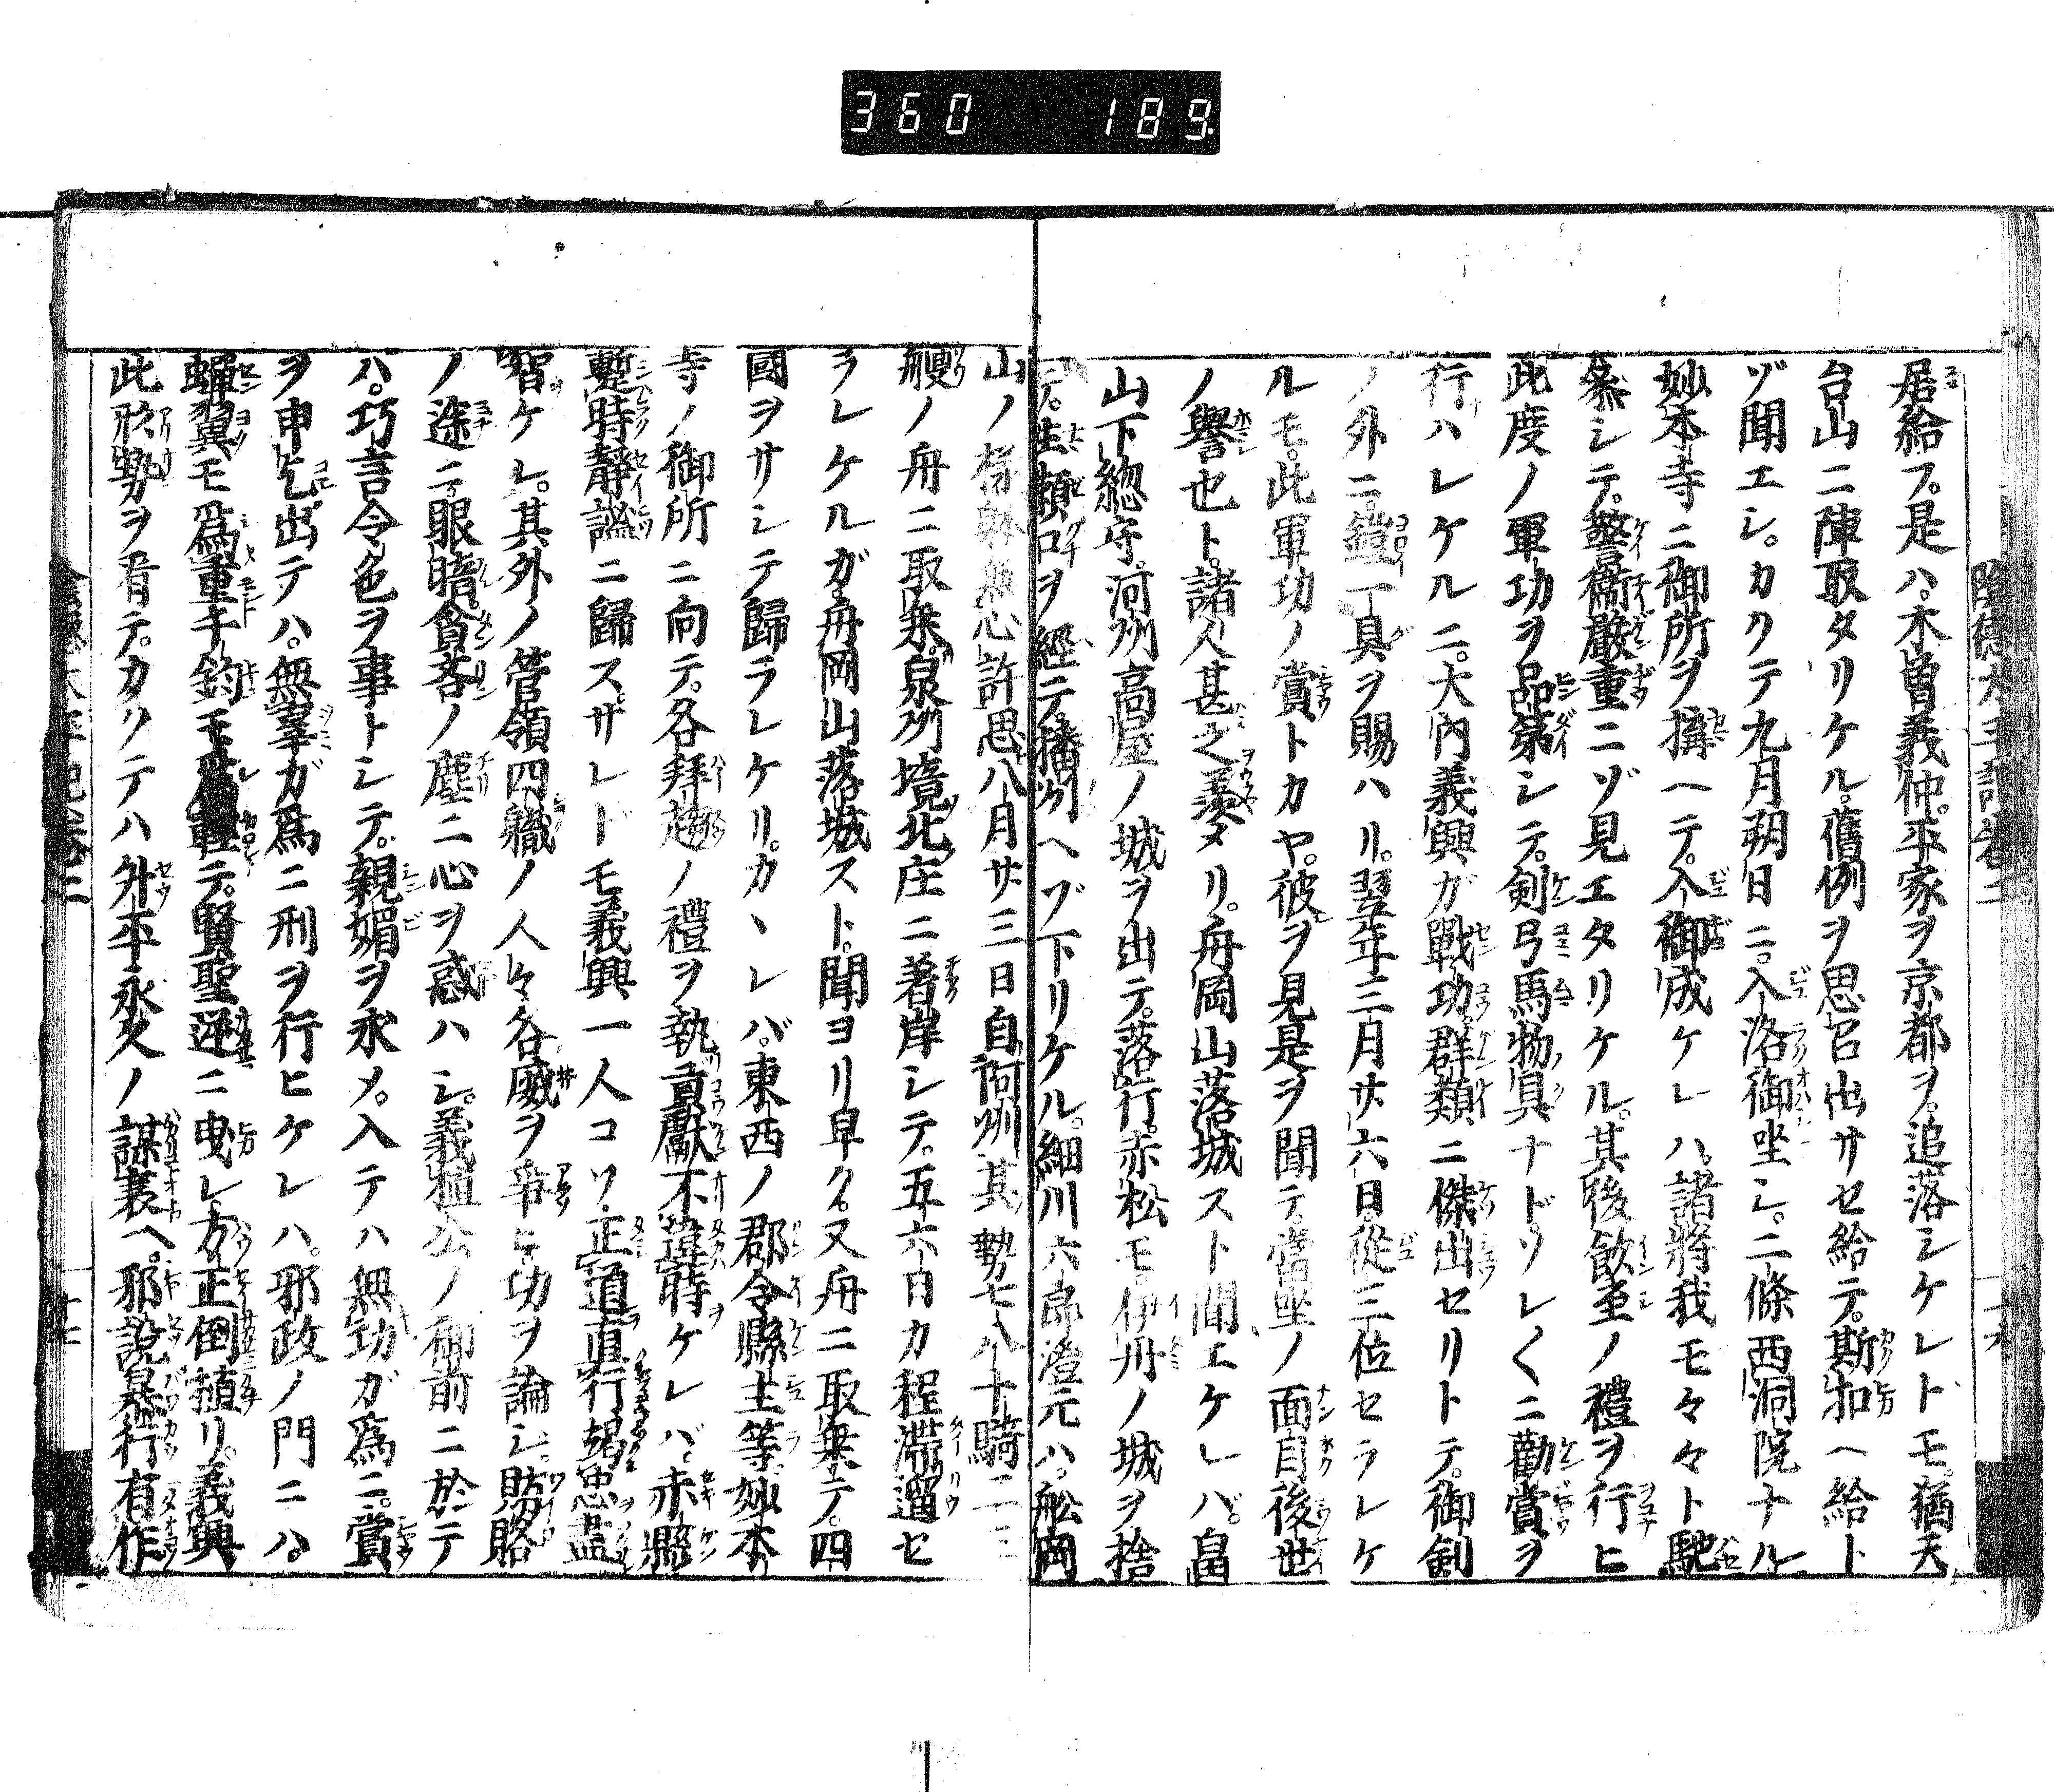 360 189
居給フ。是ハ。木曽義仲。平家ヲ京都ヲ。追落シケレトモ。猶天
台山ニ陣取タリケル。舊例ヲ思召出サセ給テ。斯扣ヘ給ト
ゾ聞エシ。カクテ九月朔日ニ。入洛御坐シ。二條西洞院ナル。
妙本寺ニ御所ヲ搆ヘテ。入御成ケレハ。諸將我モ々々ト馳
參シテ。警衞嚴重ニゾ見エタリケル。其後飲至ノ禮ヲ行ヒ
此度ノ軍功ヲ品第シテ。剣弓馬物具ナドソレ〱ニ勸賞ヲ
行ハレケルニ。大內義興ガ戰功。群類ニ傑出セリトテ。御剣
ノ外ニ。鎧一具ヲ賜ハリ。翌年三月廿六日。從三位セラレケ
ルモ。此軍功ノ賞トカヤ。彼ヲ見是ヲ聞テ。當坐ノ面目後世
ノ譽也ト。諸人甚之羨タリ。舟岡山落城スト聞エケレハ。畠
山下總守。河州高屋ノ城ヲ出テ。落行。赤松モ伊州ノ城ヲ捨
テ。生瀬口ヲ經テ。播州ヘゾ下リケル。細川六郎澄元ハ。舩岡
山ノ 無心許思。八月廿三日自阿州其勢七八十騎二三
艘ノ舟ニ取乗。泉州境北庄ニ著岸シテ。五六日カ程滯遛セ
ラレケルガ。舟岡山落城スト。聞ヨリ早ク。又舟ニ取乗テ。四
國ヲサシテ歸ラレケリ。カヽレバ。東西ノ郡令縣主等。妙本
寺ノ御所ニ向テ。各拜趨ノ禮ヲ執。貢獻不違時ケレバ。赤縣
蹔時靜謐ニ歸ス。サレドモ義興一人コソ。正道直行竭忠盡
智ケレ。其外ノ管領四職ノ人々各威ヲ爭ヒ功ヲ論シ。賂賂
ノ途ニ。眼暗。貪吝ノ塵ニ心ヲ惑ハシ。義稙公ノ御前ニ於テ
ハ。巧言令色ヲ事トシテ。親媚ヲ求メ。入テハ無功ガ爲ニ。賞
ヲ申乞。出テハ。無辜ガ爲ニ刑ヲ行ヒケレハ。邪政ノ門ニハ。
蟬翼モ爲重。千鈞モ爲輕テ。賢聖逆ニ曳レ。方正倒植リ。義興
此形勢ヲ看テ。カクテハ升平永久ノ謀衰ヘ。邪說暴行有作